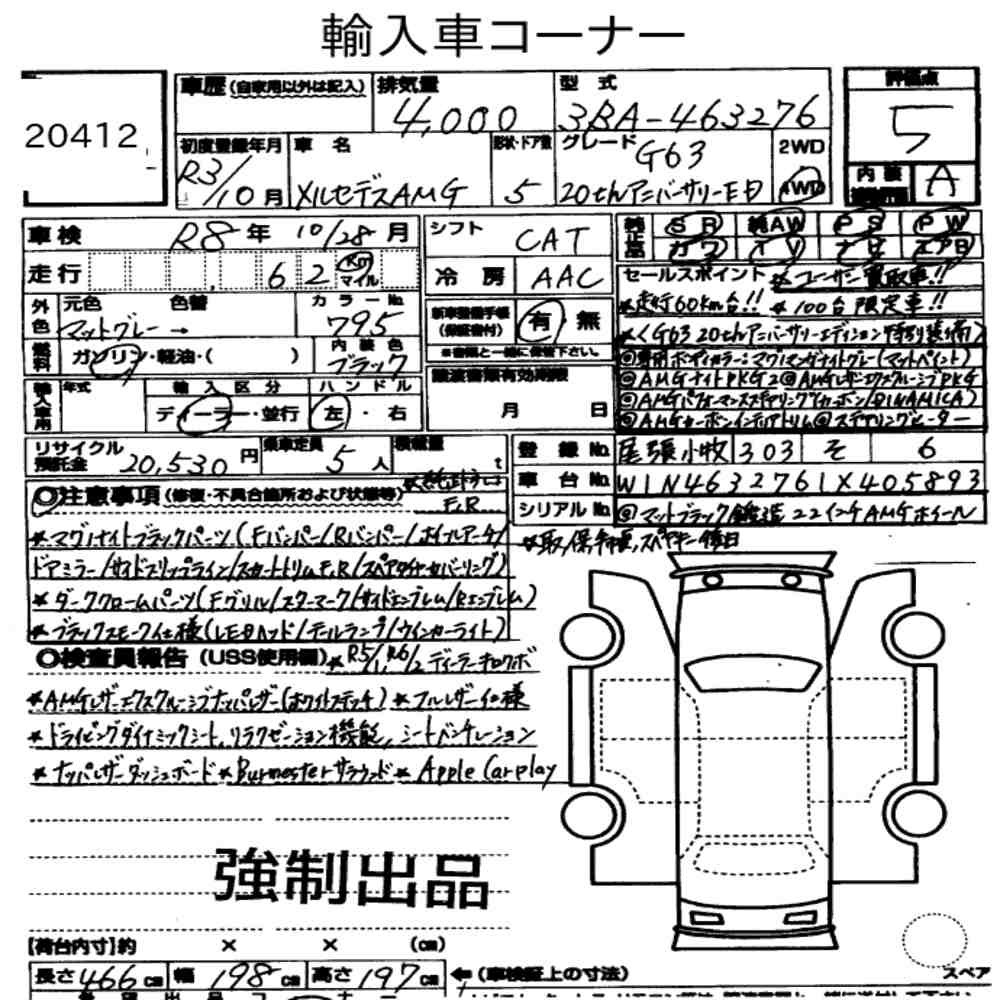 輸入車コーナー
20412
車歴 (自家用以外は記入) 排気量 4,000 型式 3BA-463276 評価点 5
初度登録年月 R3/10月 車名 メルセデスAMG 形状・ドア数 5 グレード G63 20thアニバーサリーED 2WD 4WD 内装 A
車検 R8年 10/28月 シフト CAT 純正品 SR 純AW PS PW
カワ TV ナビ エアB
走行 62 Km マイル 冷房 AAC セールスポイント *ユーザー買取車!!
*走行60km台!! *100台限定車!!
外色 元色 色替 マットグレー→ カラーNo. 795 新車整備手帳 (保証書付) 有 無
*<G63 20thアニバーサリーエディション特別装備>
燃料 ガソリン・軽油・( ) 内装色 ブラック ※書類と一緒に保管下さい。
◎専用ボディカラー:マグノマンガナイトグレー(マットペイント)
輸入車用 年式 輸入区分 ディーラー・並行 ハンドル 左・右 譲渡書類有効期限 月 日
◎AMGナイトPKG2◎AMGレザーエクスクルーシブPKG
◎AMGパフォーマンスステアリング(カーボン/DINAMICA)
◎AMGカーボンインテリアトリム◎ステアリングヒーター
リサイクル預託金 20,530円 乗車定員 5人 積載量 t 登録No. 尾張小牧 303 そ 6
車台No. W1N4632761X405893
シリアルNo. ◎マットブラック鍛造22インチAMGホイール
*取,保,手帳,スペアキー後日
◎注意事項 (修復・不具合箇所および状態等) F,R
*マグノナイトブラックパーツ(Fバンパー/Rバンパー/ホイルアーチ/
ドアミラー/サイドストリップライン/スカートトリムF,R/スペアタイヤカバーリング)
*ダーククロームパーツ(Fグリル/スターマーク/サイドエンブレム/Rエンブレム)
*ブラックスモーク仕様(LEDヘッド/テールランプ/ウインカーライト)
◎検査員報告 (USS使用欄) *R5/1,R6/2ディーラーキロクボ
*AMGレザーエクスクルーシブナッパレザー(ホワイトステッチ) *フルレザー仕様
*ドライビングダイナミックシート,リラクゼーション機能,シートベンチレーション
*ナッパレザーダッシュボード*Burmesterサラウンド* Apple Carplay
強制出品
[荷台内寸]約 × × (㎝)
長さ466㎝ 幅198㎝ 高さ197㎝ ←(車検証上の寸法) スペア